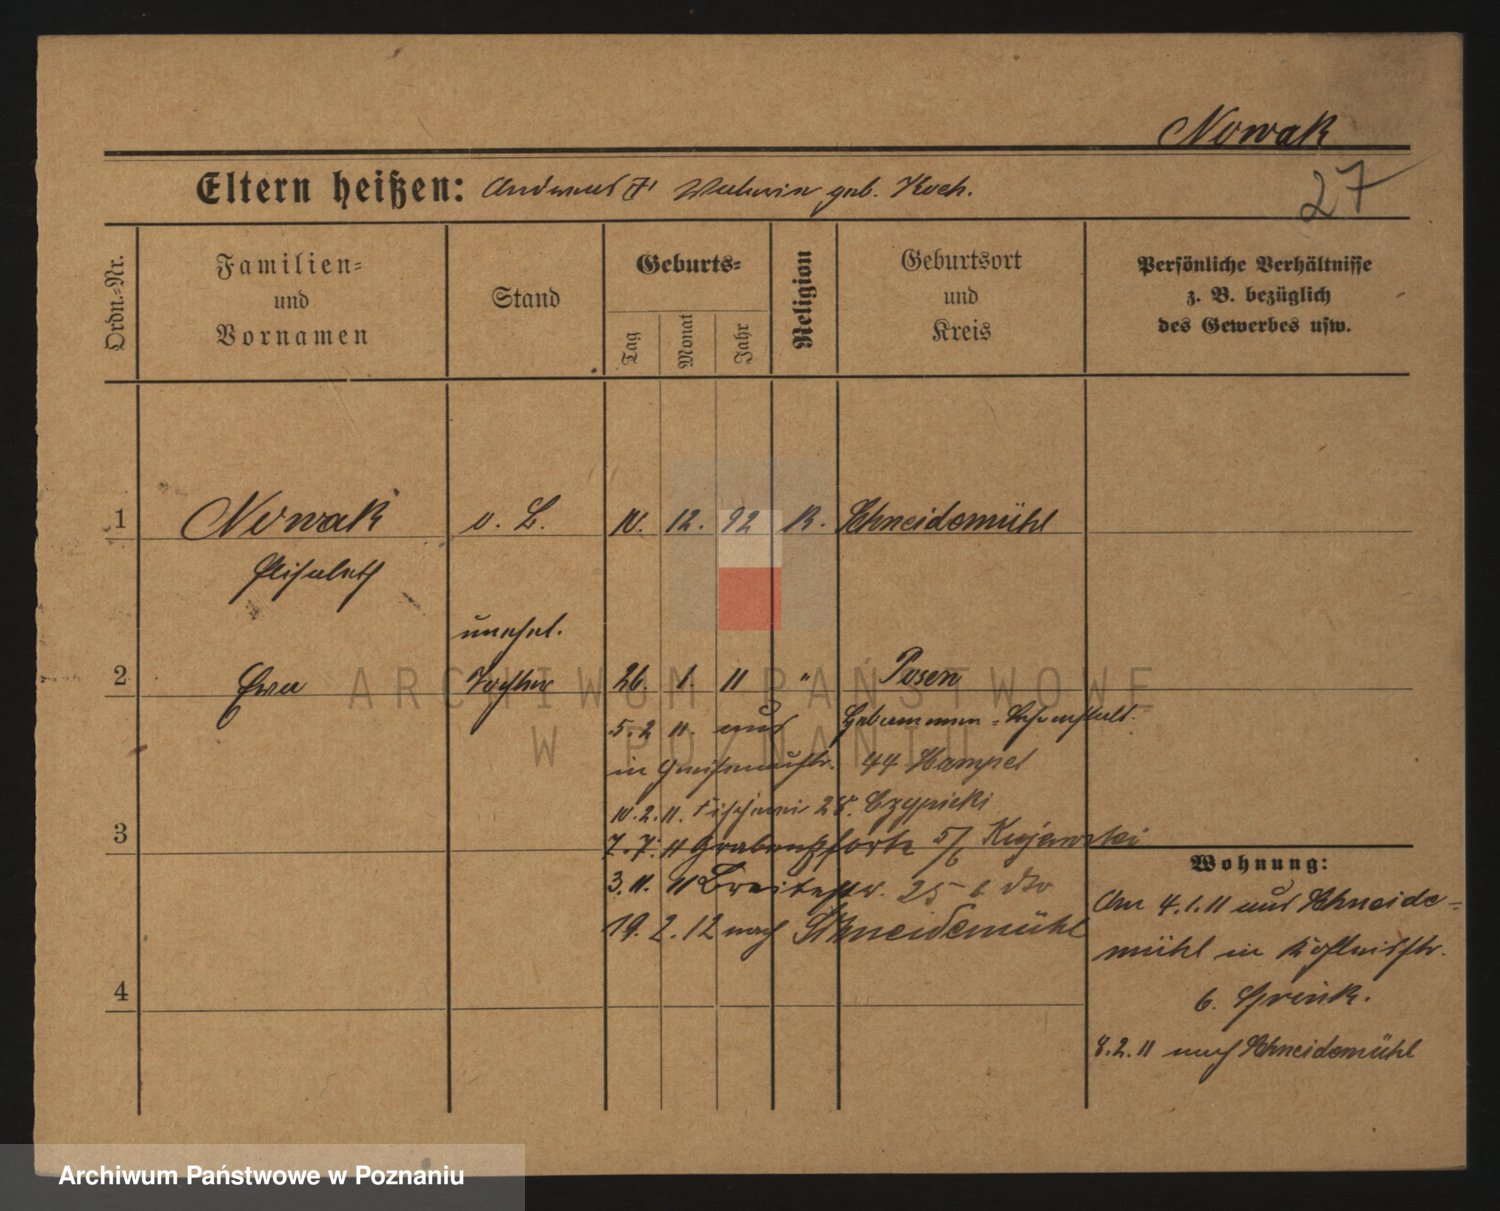 Nowak
27
Eltern heißen: Andreas u. geb. Koch.
Ordn.-Nr.
Familien- und Vornamen
Stand
Geburts-
Tag
Monat
Jahr
Religion
Geburtsort und Kreis
Persönliche Verhältnisse
z. B. bezüglich
des Gewerbes usw.
1 Nowak o. 10. 12. 92 K. Schneidemühl
Elisabeth
unehel.
2 Ewa Tochter 26. 1. 11 " Posen
5. 2. 11. aus Hebammen-Lehranstalt
in Gneisenaustr. 44 Hampel
10. 2. 11. Fischerei 28. Czypicki
3
7. 7. 11 Grabenpforte 5/6 Kujawski
3. 11. 11 Breitestr. 25
19. 2. 12 nach Schneidemühl
4
Wohnung:
Am 4. 1. 11 aus Schneide-
mühl in
6.
8. 2. 11 nach Schneidemühl
ARCHIWUM PAŃSTWOWE
W POZNANIU
Archiwum Państwowe w Poznaniu